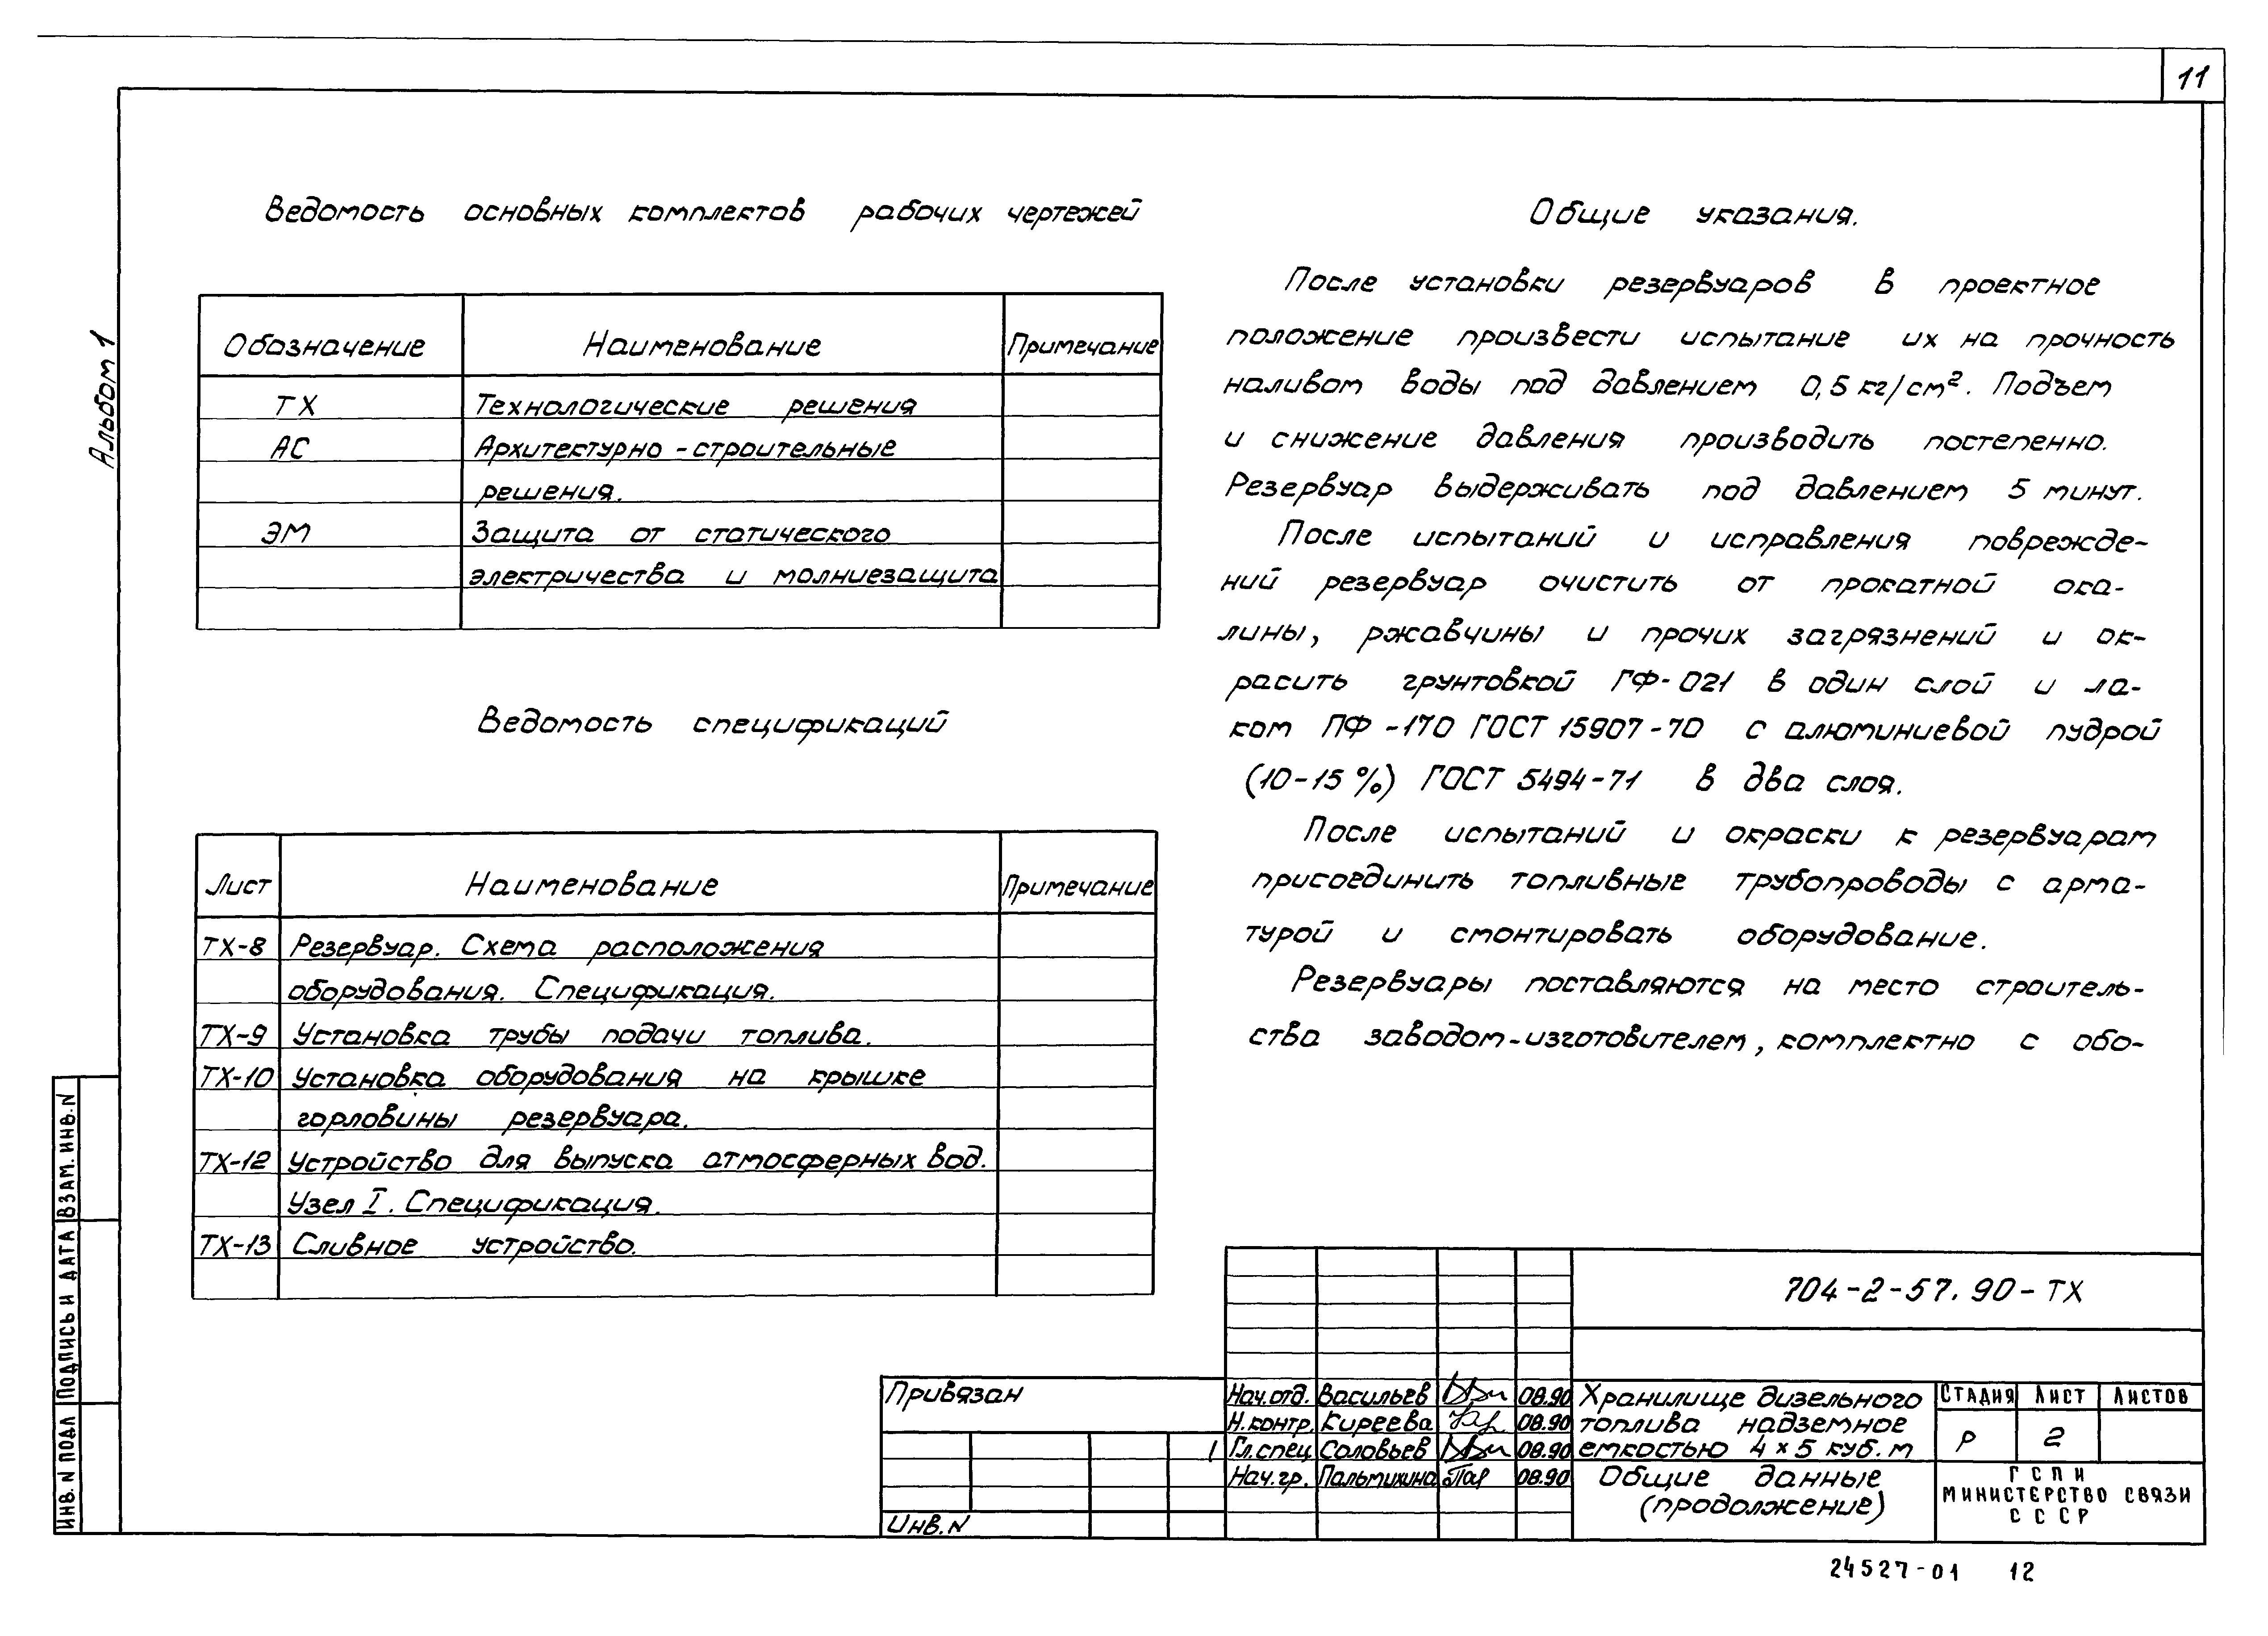 11
Альбом 1
Ведомость основных комплектов рабочих чертежей
Обозначение Наименование Примечание
ТХ Технологические решения
АС Архитектурно-строительные
решения.
ЭМ Защита от статического
электричества и молниезащита
Ведомость спецификаций
Лист Наименование Примечание
ТХ-8 Резервуар. Схема расположения
оборудования. Спецификация.
ТХ-9 Установка трубы подачи топлива.
ТХ-10 Установка оборудования на крышке
горловины резервуара.
ТХ-12 Устройство для выпуска атмосферных вод.
Узел I. Спецификация.
ТХ-13 Сливное устройство.
Общие указания.
После установки резервуаров в проектное
положение произвести испытание их на прочность
наливом воды под давлением 0,5 кг/см². Подъем
и снижение давления производить постепенно.
Резервуар выдерживать под давлением 5 минут.
После испытаний и исправления поврежде-
ний резервуар очистить от прокатной ока-
лины, ржавчины и прочих загрязнений и ок-
расить грунтовкой ГФ-021 в один слой и ла-
ком ПФ-170 ГОСТ 15907-70 с алюминиевой пудрой
(10-15%) ГОСТ 5494-71 в два слоя.
После испытаний и окраски к резервуарам
присоединить топливные трубопроводы с арма-
турой и смонтировать оборудование.
Резервуары поставляются на место строитель-
ства заводом-изготовителем, комплектно с обо-
Взам. инв. N
Подпись и дата
Инв. N подл
Привязан
Инв. N
704-2-57.90-ТХ
Нач. отд. Васильев 08.90
Н. контр. Киреева 08.90
1 Гл. спец Соловьев 08.90
Нач. гр. Пальмихина 08.90
Хранилище дизельного
топлива надземное
емкостью 4×5 куб. м
Стадия Лист Листов
Р 2
Общие данные
(продолжение)
ГСПИ
Министерство связи
СССР
24527-01 12